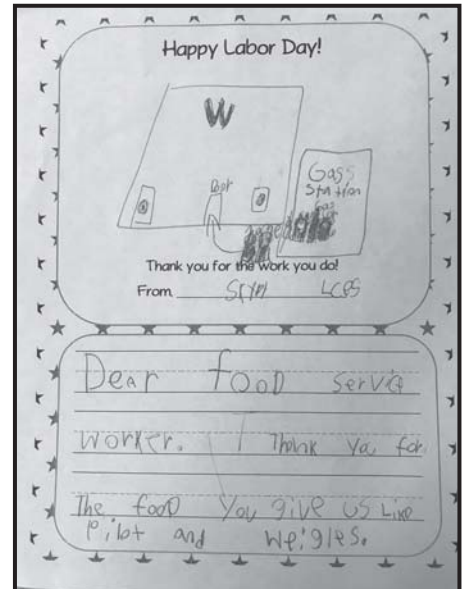 Happy Labor Day!
W
Door
Gass
Station
Gas
Thank you for the work you do!
From LCES
Dear food servic
worker. I Thank You for
The food You give us Like
Pilot and Weigles.